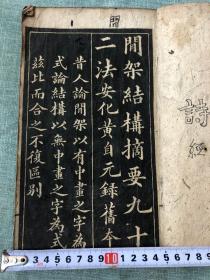 詩
經
間架結構摘要九十
二法安化黃自元錄舊本
昔人論間架以有中畫之字為
式論結構以無中畫之字為式
茲比而合之不復區別
10